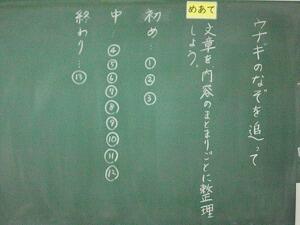 ウナギのなぞを追って
めあて
文章を内容のまとまりごとに整理
しよう。
初め…①②③
中…④⑤⑥⑦⑧⑨⑩⑪⑫
終わり…⑬